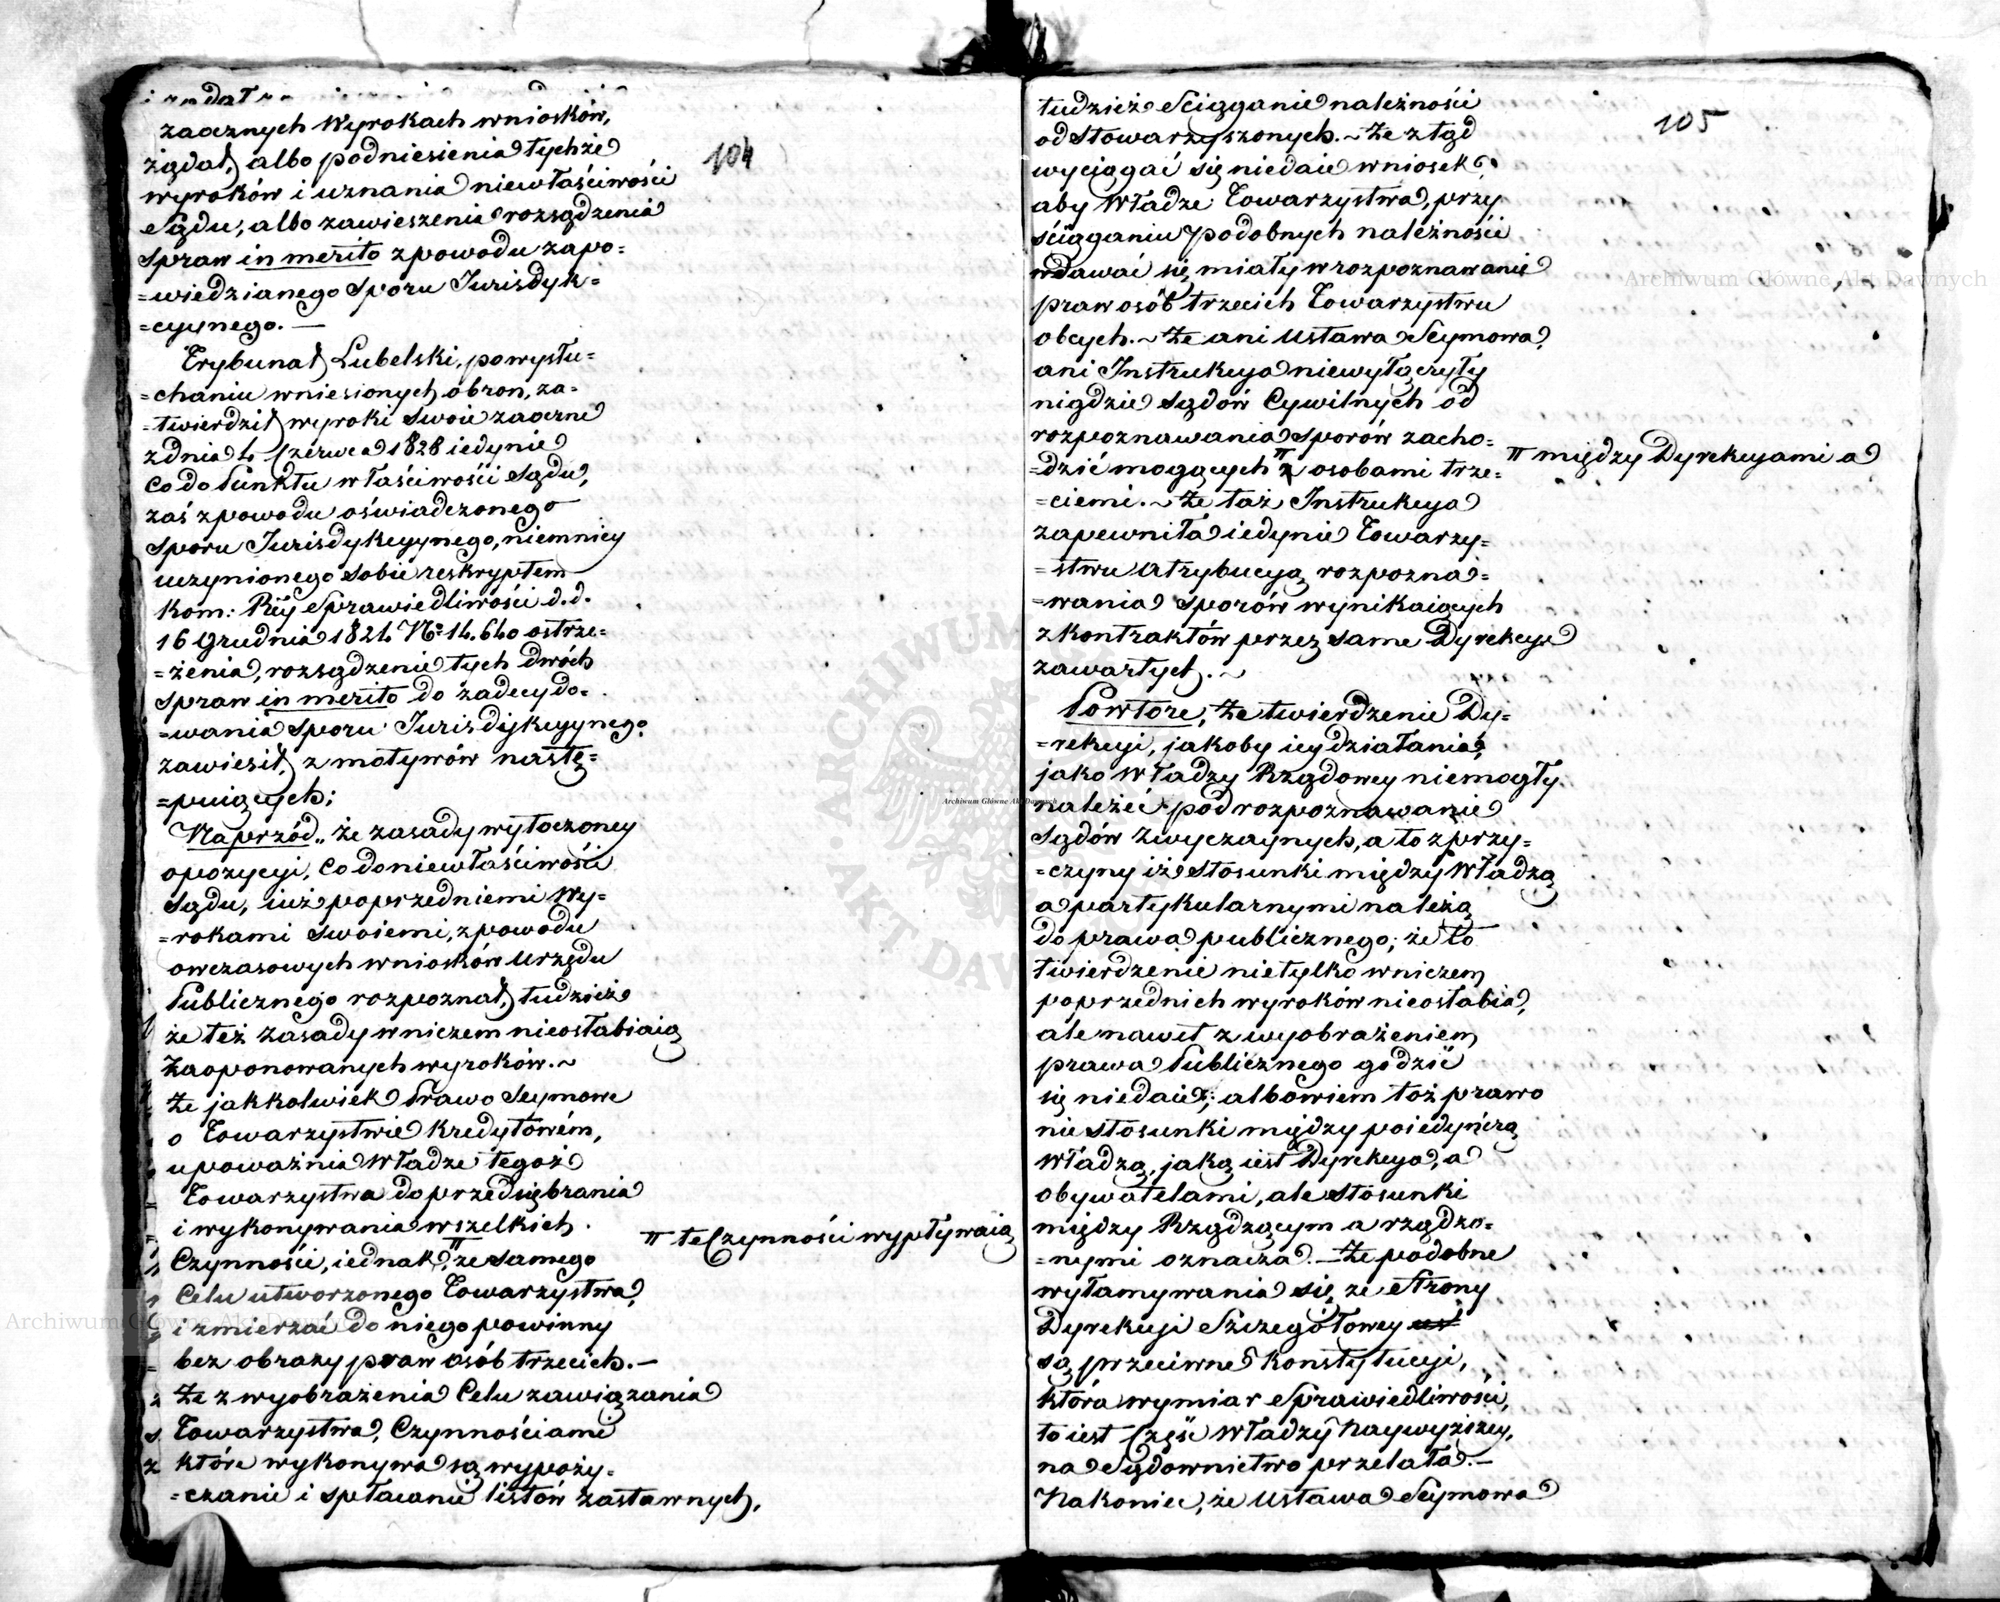 104
zaocznych Wyrokach wniosków,
żądał, albo podniesienia tychże
wyroków i uznania niewłaściwości
Sądu, albo zawieszenia rozsądzenia
Spraw in merito z powodu zapo=
=wiedzianego Sporu Jurisdyk=
=cyynego. —
Trybunał Lubelski, po wysłu=
=chaniu wniesionych obron, za=
=twierdził wyroki swoie zaoczne
z dnia 4 Czerwca 1828 iedynie
Co do Punktu właściwości Sądu,
zaś z powodu oświadczonego
Sporu Jurisdykcyynego, niemniey
uczynionego sobie reskryptem
Kom: Rży Sprawiedliwości d.d.
16 Grudnia 1824 No 14.640 ostrze=
=żenia, rozsądzenie tych dwóch
Spraw in merito do zadecydo=
=wania Sporu Jurisdykcyynego
zawiesił, z motywów nastę=
=puiących;
Naprzód „ że zasady wytoczoney
opozycyi, Co do niewłaściwości
Sądu, iuż poprzedniemi Wy=
=rokami Swoiemi, z powodu
owczasowych wniosków Urzędu
Publicznego rozpoznał, tudzież
że też zasady wniczem nieosłabiaią
Zaoponowanych wyroków. ~
Że jakkolwiek Prawo Seymowe
o Towarzystwie Kredytowém,
upoważnia Władze tegoż
Towarzystwa do przedsiębrania
i wykonywania wszelkich
Czynności, iednak π ze samego
π te Czynności wypływaią
Celu utworzonego Towarzystwa,
i zmierzać do niego powinny
bez obrazy praw osób trzecich. —
Że z wyobrażenia Celu zawiązania
Towarzystwa, Czynnościami
które wykonywa są wypoży=
=czanie i spłacanie listów zastawnych,
105
tudzież Ściąganie należności
od Stowarzyszonych. ~ Że ztąd
wyciągać się niedaie wniosek,
aby Władze Towarzystwa, przy
ściąganiu podobnych należności
wdawać się miały w rozpoznawanie
praw osób trzecich Towarzystwu
obcych. ~ Że ani Ustawa Seymowa,
ani Instrukcya niewyłączyły
nigdzie Sądów Cywilnych od
rozpoznawania Sporów zacho=
=dzić mogących π z osobami trze=
π między Dyrekcyami a
=ciemi. ~ Że taż Instrukcya
zapewniła iedynie Towarzy=
=stwu Atrybucyą rozpozna=
=wania Sporów wynikaiących
z Kontraktów przez same Dyrekcye
zawartych. ~
Powtóre, Że twierdzenie Dy=
=rekcyi, jakoby iey działania,
jako Władzy Rządowey niemogły
należeć pod rozpoznawanie
Sądów zwyczaynych, a to z przy=
=czyny iż Stosunki między Władzą
a partykularnymi należą
do prawa publicznego; że to
twierdzenie nietylko wniczem
poprzednich wyroków nieosłabia,
ale nawet z wyobrażeniem
prawa Publicznego godzić
się niedaie; albowiem toż prawo
nie Stosunki między poiedyńczą
Władzą, jaką iest Dyrekcya, a
obywatelami, ale Stosunki
między Rządzącym a rządzo=
=nymi oznacza. — Że podobne
wyłamywania się ze Strony
Dyrekcyi Szczegółowey
są przeciwne Konstytucyi,
która wymiar Sprawiedliwości,
to iest Część Władzy Naywyższey,
na Sądownictwo przelała. —
Nakoniec, że Ustawa Seymowa